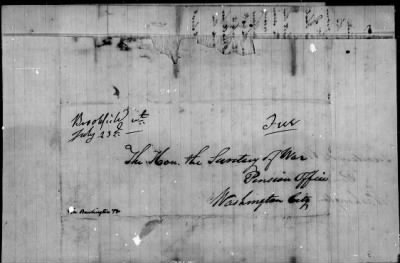 Brookfield Vt
July 23d
Free
The Hon. the Secretary of War
Pension Office
Washington City